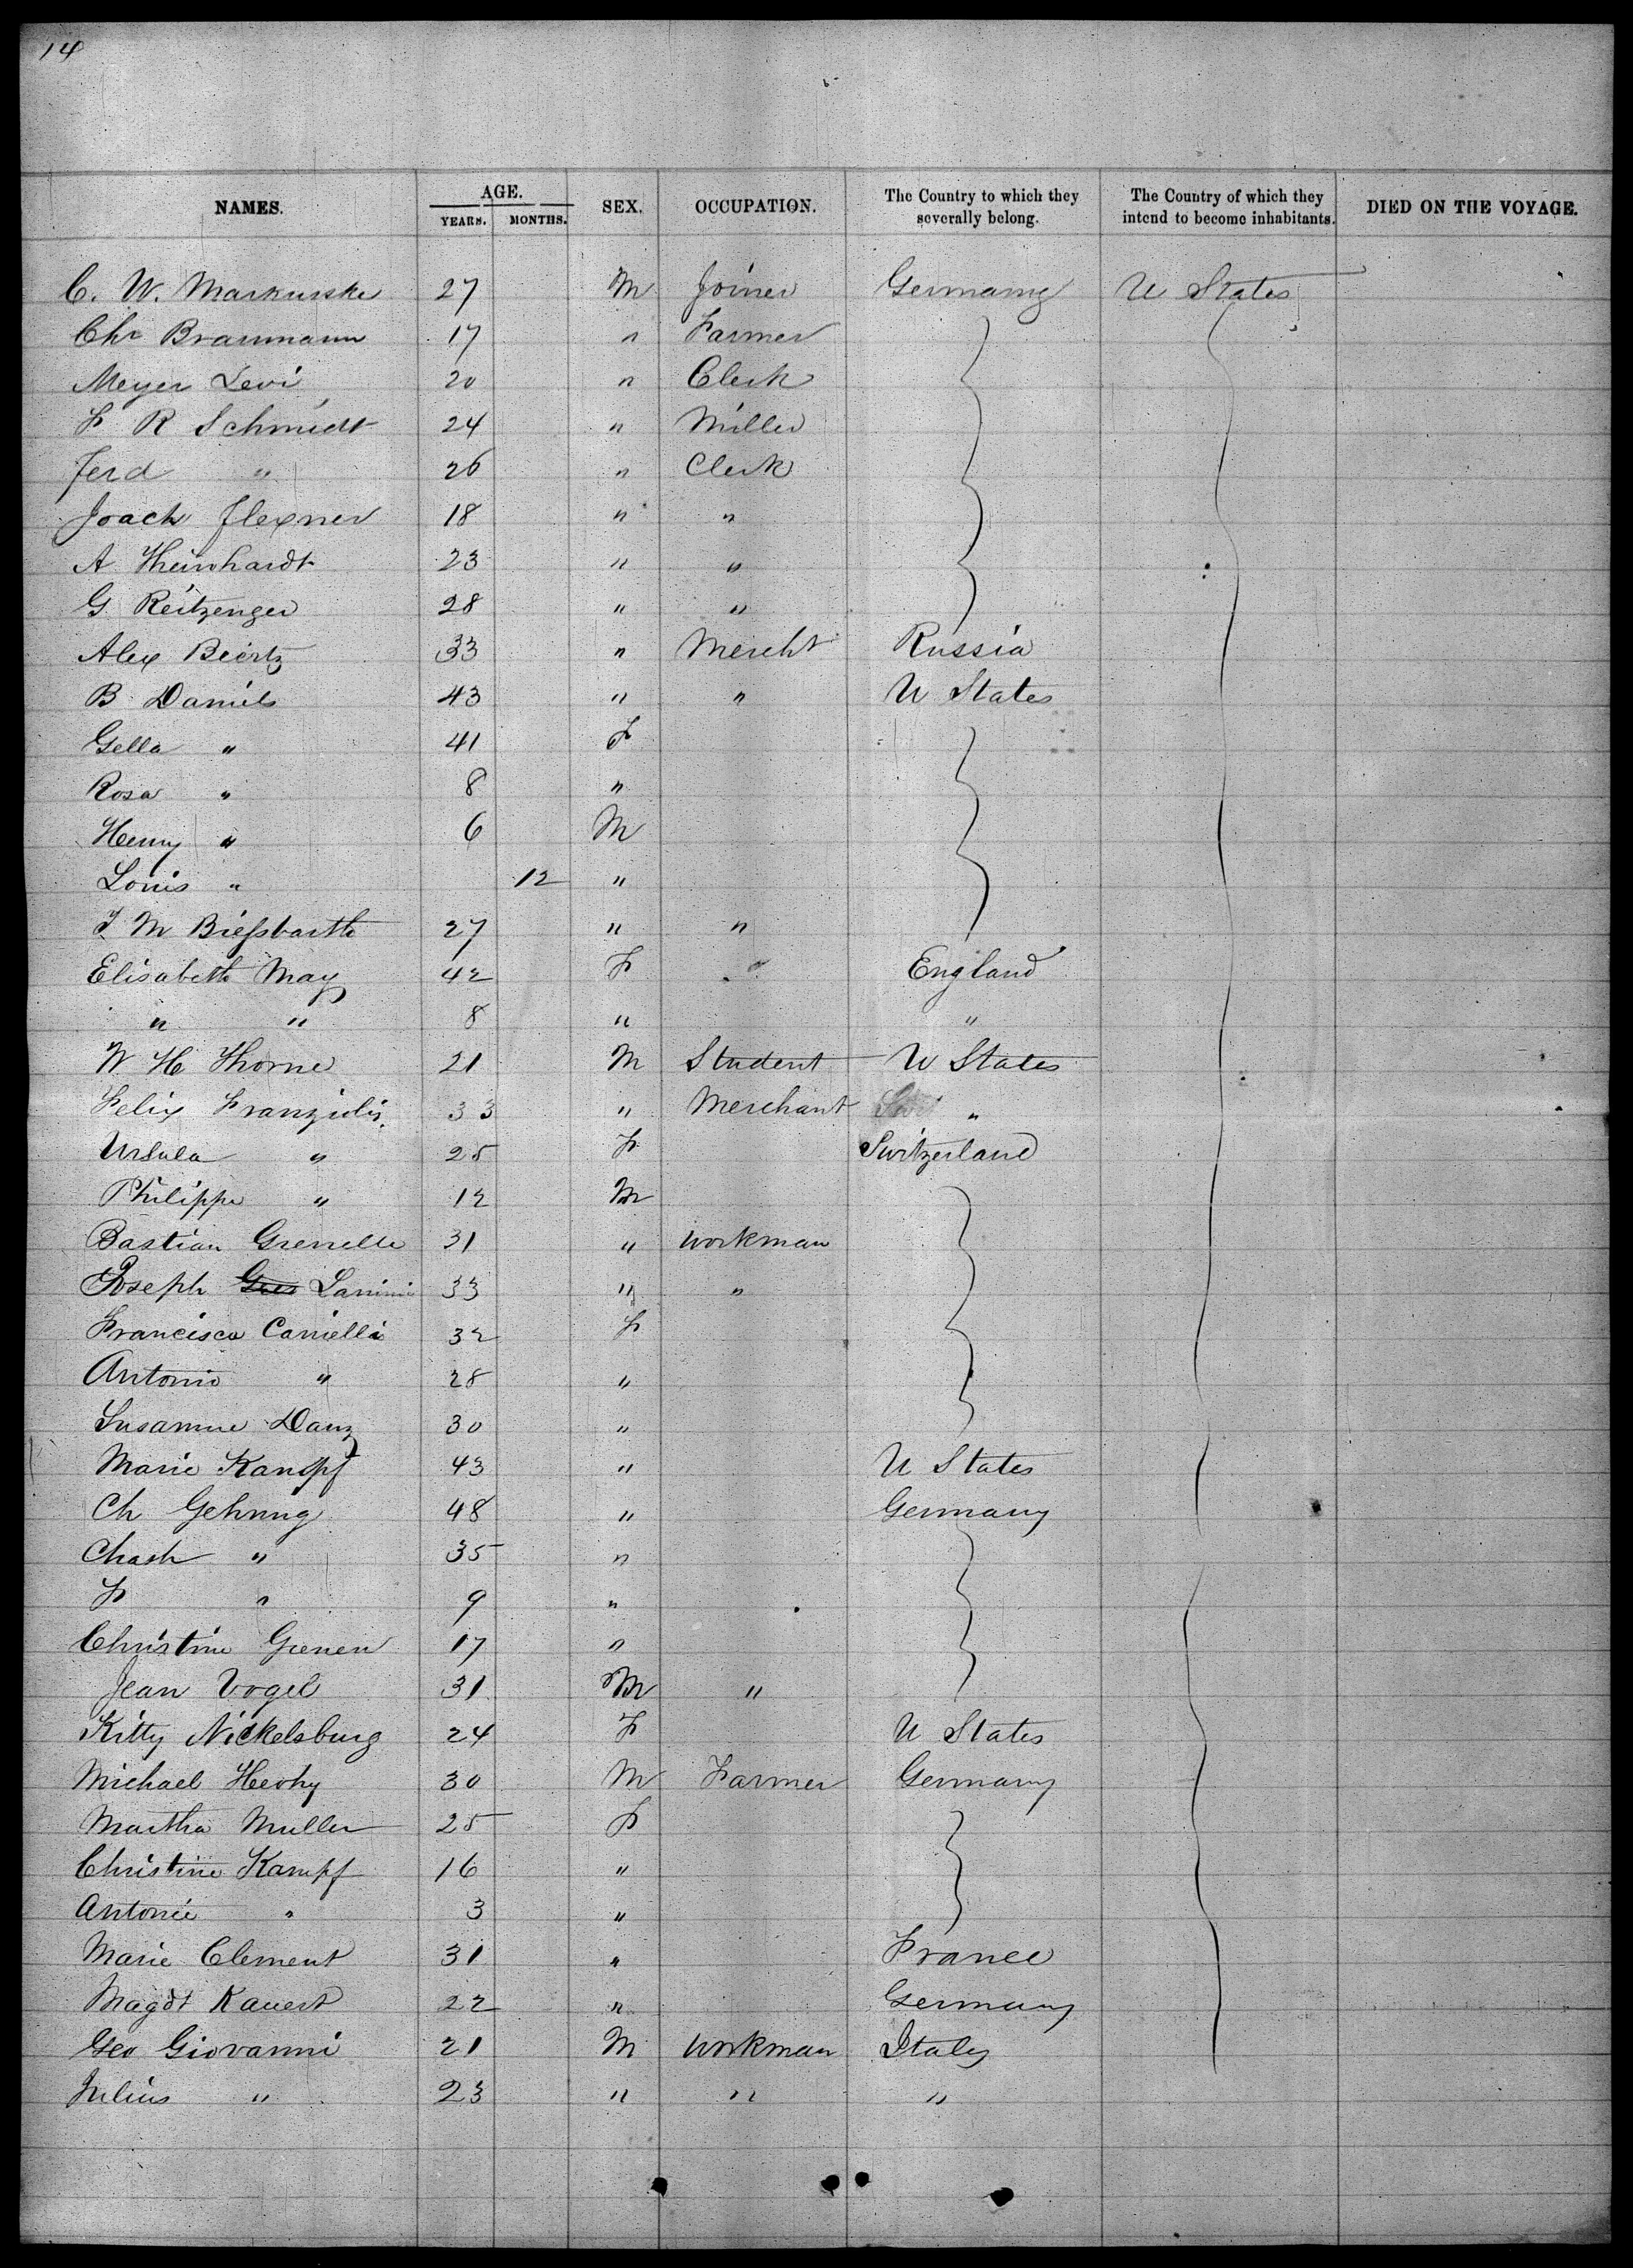 14
NAMES. AGE. YEARS. MONTHS. SEX. OCCUPATION. The Country to which they severally belong. The Country of which they intend to become inhabitants. DIED ON THE VOYAGE.
C. W. Markurske 27 M Joiner Germany U States
Chr Braunmann 17 " Farmer
Meyer Levi 20 " Clerk
F R Schmidt 24 " Miller
Ferd " 26 " Clerk
Joach Flexner 18 " "
A Theinhardt 23 " "
G Reitzenger 28 " "
Alex Beertz 33 " Mercht Russia
B Daniels 43 " " U States
Gella " 41 F
Rosa " 8 "
Henry " 6 M
Louis " 12 "
J M Biessbarth 27 " "
Elisabeth May 42 F England
" " 8 " "
W H Thorne 21 M Student U States
Felix 33 " Merchant "
Ursula " 25 F Switzerland
Philippe " 12 M
Bastian Grenelle 31 " workman
Joseph Lanini 33 " "
Francisca Camelli 32 F
Antonio " 28 "
Susanne Danz 30 "
Marie Kampf 43 " U States
Ch Gehrung 48 " Germany
Chash " 35 "
F " 9 "
Christine Grenen 17 "
Jean Vogel 31 M "
Kitty Nickelsburg 24 F U States
Michael Heohy 30 M Farmer Germany
Martha Muller 25 F
Christine Kampf 16 "
Antonie " 3 "
Marie Clement 31 " France
Magdt Kauert 22 " Germany
Geo Giovanni 21 M workman Italy
Julius " 23 " " "